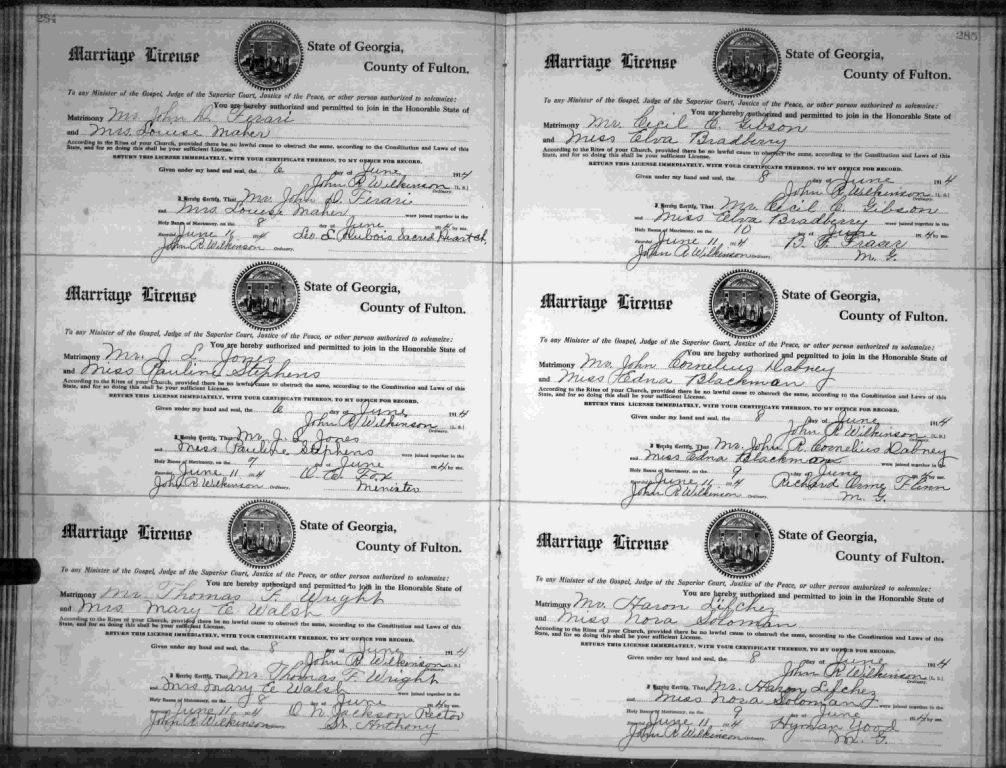 284
Marriage License
State of Georgia,
County of Fulton.
To any Minister of the Gospel, Judge of the Superior Court, Justice of the Peace, or other person authorized to solemnize:
You are hereby authorized and permitted to join in the Honorable State of
Matrimony Mr. John D. Ferari
and Mrs. Louise Maher
According to the Rites of your Church, provided there be no lawful cause to obstruct the same, according to the Constitution and Laws of this
State, and for so doing this shall be your sufficient License.
RETURN THIS LICENSE IMMEDIATELY, WITH YOUR CERTIFICATE THEREON, TO MY OFFICE FOR RECORD.
Given under my hand and seal, the 6 day of June 1914
John R. Wilkinson (L. S.)
Ordinary.
I Hereby Certify, That Mr. John D. Ferari
and Mrs. Louise Maher were joined together in the
Holy Banns of Matrimony, on the 8 day of June 1914 by me.
Recorded June 11 1914 Sacred Heart Ch.
John R Wilkinson Ordinary.
Marriage License
State of Georgia,
County of Fulton.
To any Minister of the Gospel, Judge of the Superior Court, Justice of the Peace, or other person authorized to solemnize:
You are hereby authorized and permitted to join in the Honorable State of
Matrimony Mr. J. L. Jones
and Miss Pauline Stephens
According to the Rites of your Church, provided there be no lawful cause to obstruct the same, according to the Constitution and Laws of this
State, and for so doing this shall be your sufficient License.
RETURN THIS LICENSE IMMEDIATELY, WITH YOUR CERTIFICATE THEREON, TO MY OFFICE FOR RECORD.
Given under my hand and seal, the 6 day of June 1914
John R. Wilkinson (L. S.)
Ordinary.
I Hereby Certify, That Mr. J. L. Jones
and Miss Pauline Stephens were joined together in the
Holy Banns of Matrimony, on the 7 day of June 1914 by me.
Recorded June 11 1914 Fox
John R Wilkinson Ordinary. Minister
Marriage License
State of Georgia,
County of Fulton.
To any Minister of the Gospel, Judge of the Superior Court, Justice of the Peace, or other person authorized to solemnize:
You are hereby authorized and permitted to join in the Honorable State of
Matrimony Mr. Thomas F. Wright
and Mrs. Mary E Walsh
According to the Rites of your Church, provided there be no lawful cause to obstruct the same, according to the Constitution and Laws of this
State, and for so doing this shall be your sufficient License.
RETURN THIS LICENSE IMMEDIATELY, WITH YOUR CERTIFICATE THEREON, TO MY OFFICE FOR RECORD.
Given under my hand and seal, the 8 day of June 1914
John R Wilkinson (L. S.)
Ordinary.
I Hereby Certify, That Mr. Thomas F. Wright
and Mrs Mary E Walsh were joined together in the
Holy Banns of Matrimony, on the 9 day of June 1914 by me.
Recorded June 11 1914 O N Jackson Pastor
John R Wilkinson Ordinary. St. Anthony
285
Marriage License
State of Georgia,
County of Fulton.
To any Minister of the Gospel, Judge of the Superior Court, Justice of the Peace, or other person authorized to solemnize:
You are hereby authorized and permitted to join in the Honorable State of
Matrimony Mr. Cecil C. Gibson
and Miss Elva Bradberry
According to the Rites of your Church, provided there be no lawful cause to obstruct the same, according to the Constitution and Laws of this
State, and for so doing this shall be your sufficient License.
RETURN THIS LICENSE IMMEDIATELY, WITH YOUR CERTIFICATE THEREON, TO MY OFFICE FOR RECORD.
Given under my hand and seal, the 8 day of June 1914
John R Wilkinson (L. S.)
Ordinary.
I Hereby Certify, That Mr. Cecil C. Gibson
and Miss Elva Bradberry were joined together in the
Holy Banns of Matrimony, on the 10 day of June 1914 by me.
Recorded June 11 1914 B. F. Fraser
John R Wilkinson Ordinary. M. G.
Marriage License
State of Georgia,
County of Fulton.
To any Minister of the Gospel, Judge of the Superior Court, Justice of the Peace, or other person authorized to solemnize:
You are hereby authorized and permitted to join in the Honorable State of
Matrimony Mr. John Cornelius Dabney
and Miss Edna Blackman
According to the Rites of your Church, provided there be no lawful cause to obstruct the same, according to the Constitution and Laws of this
State, and for so doing this shall be your sufficient License.
RETURN THIS LICENSE IMMEDIATELY, WITH YOUR CERTIFICATE THEREON, TO MY OFFICE FOR RECORD.
Given under my hand and seal, the 8 day of June 1914
John R Wilkinson (L. S.)
Ordinary.
I Hereby Certify, That Mr. John R. Cornelius Dabney
and Miss Edna Blackman were joined together in the
Holy Banns of Matrimony, on the 9 day of June 1914 by me.
Recorded June 11 1914 Richard Orme Flinn
John R Wilkinson Ordinary. M. G.
Marriage License
State of Georgia,
County of Fulton.
To any Minister of the Gospel, Judge of the Superior Court, Justice of the Peace, or other person authorized to solemnize:
You are hereby authorized and permitted to join in the Honorable State of
Matrimony Mr. Haron Lifchez
and Miss Nora Soloman
According to the Rites of your Church, provided there be no lawful cause to obstruct the same, according to the Constitution and Laws of this
State, and for so doing this shall be your sufficient License.
RETURN THIS LICENSE IMMEDIATELY, WITH YOUR CERTIFICATE THEREON, TO MY OFFICE FOR RECORD.
Given under my hand and seal, the 8 day of June 1914
John R Wilkinson (L. S.)
Ordinary.
I Hereby Certify, That Mr. Haron Lifchez
and Miss Nora Soloman were joined together in the
Holy Banns of Matrimony, on the 9 day of June 1914 by me.
Recorded June 11 1914 Hyman Yood
John R Wilkinson Ordinary. M. G.